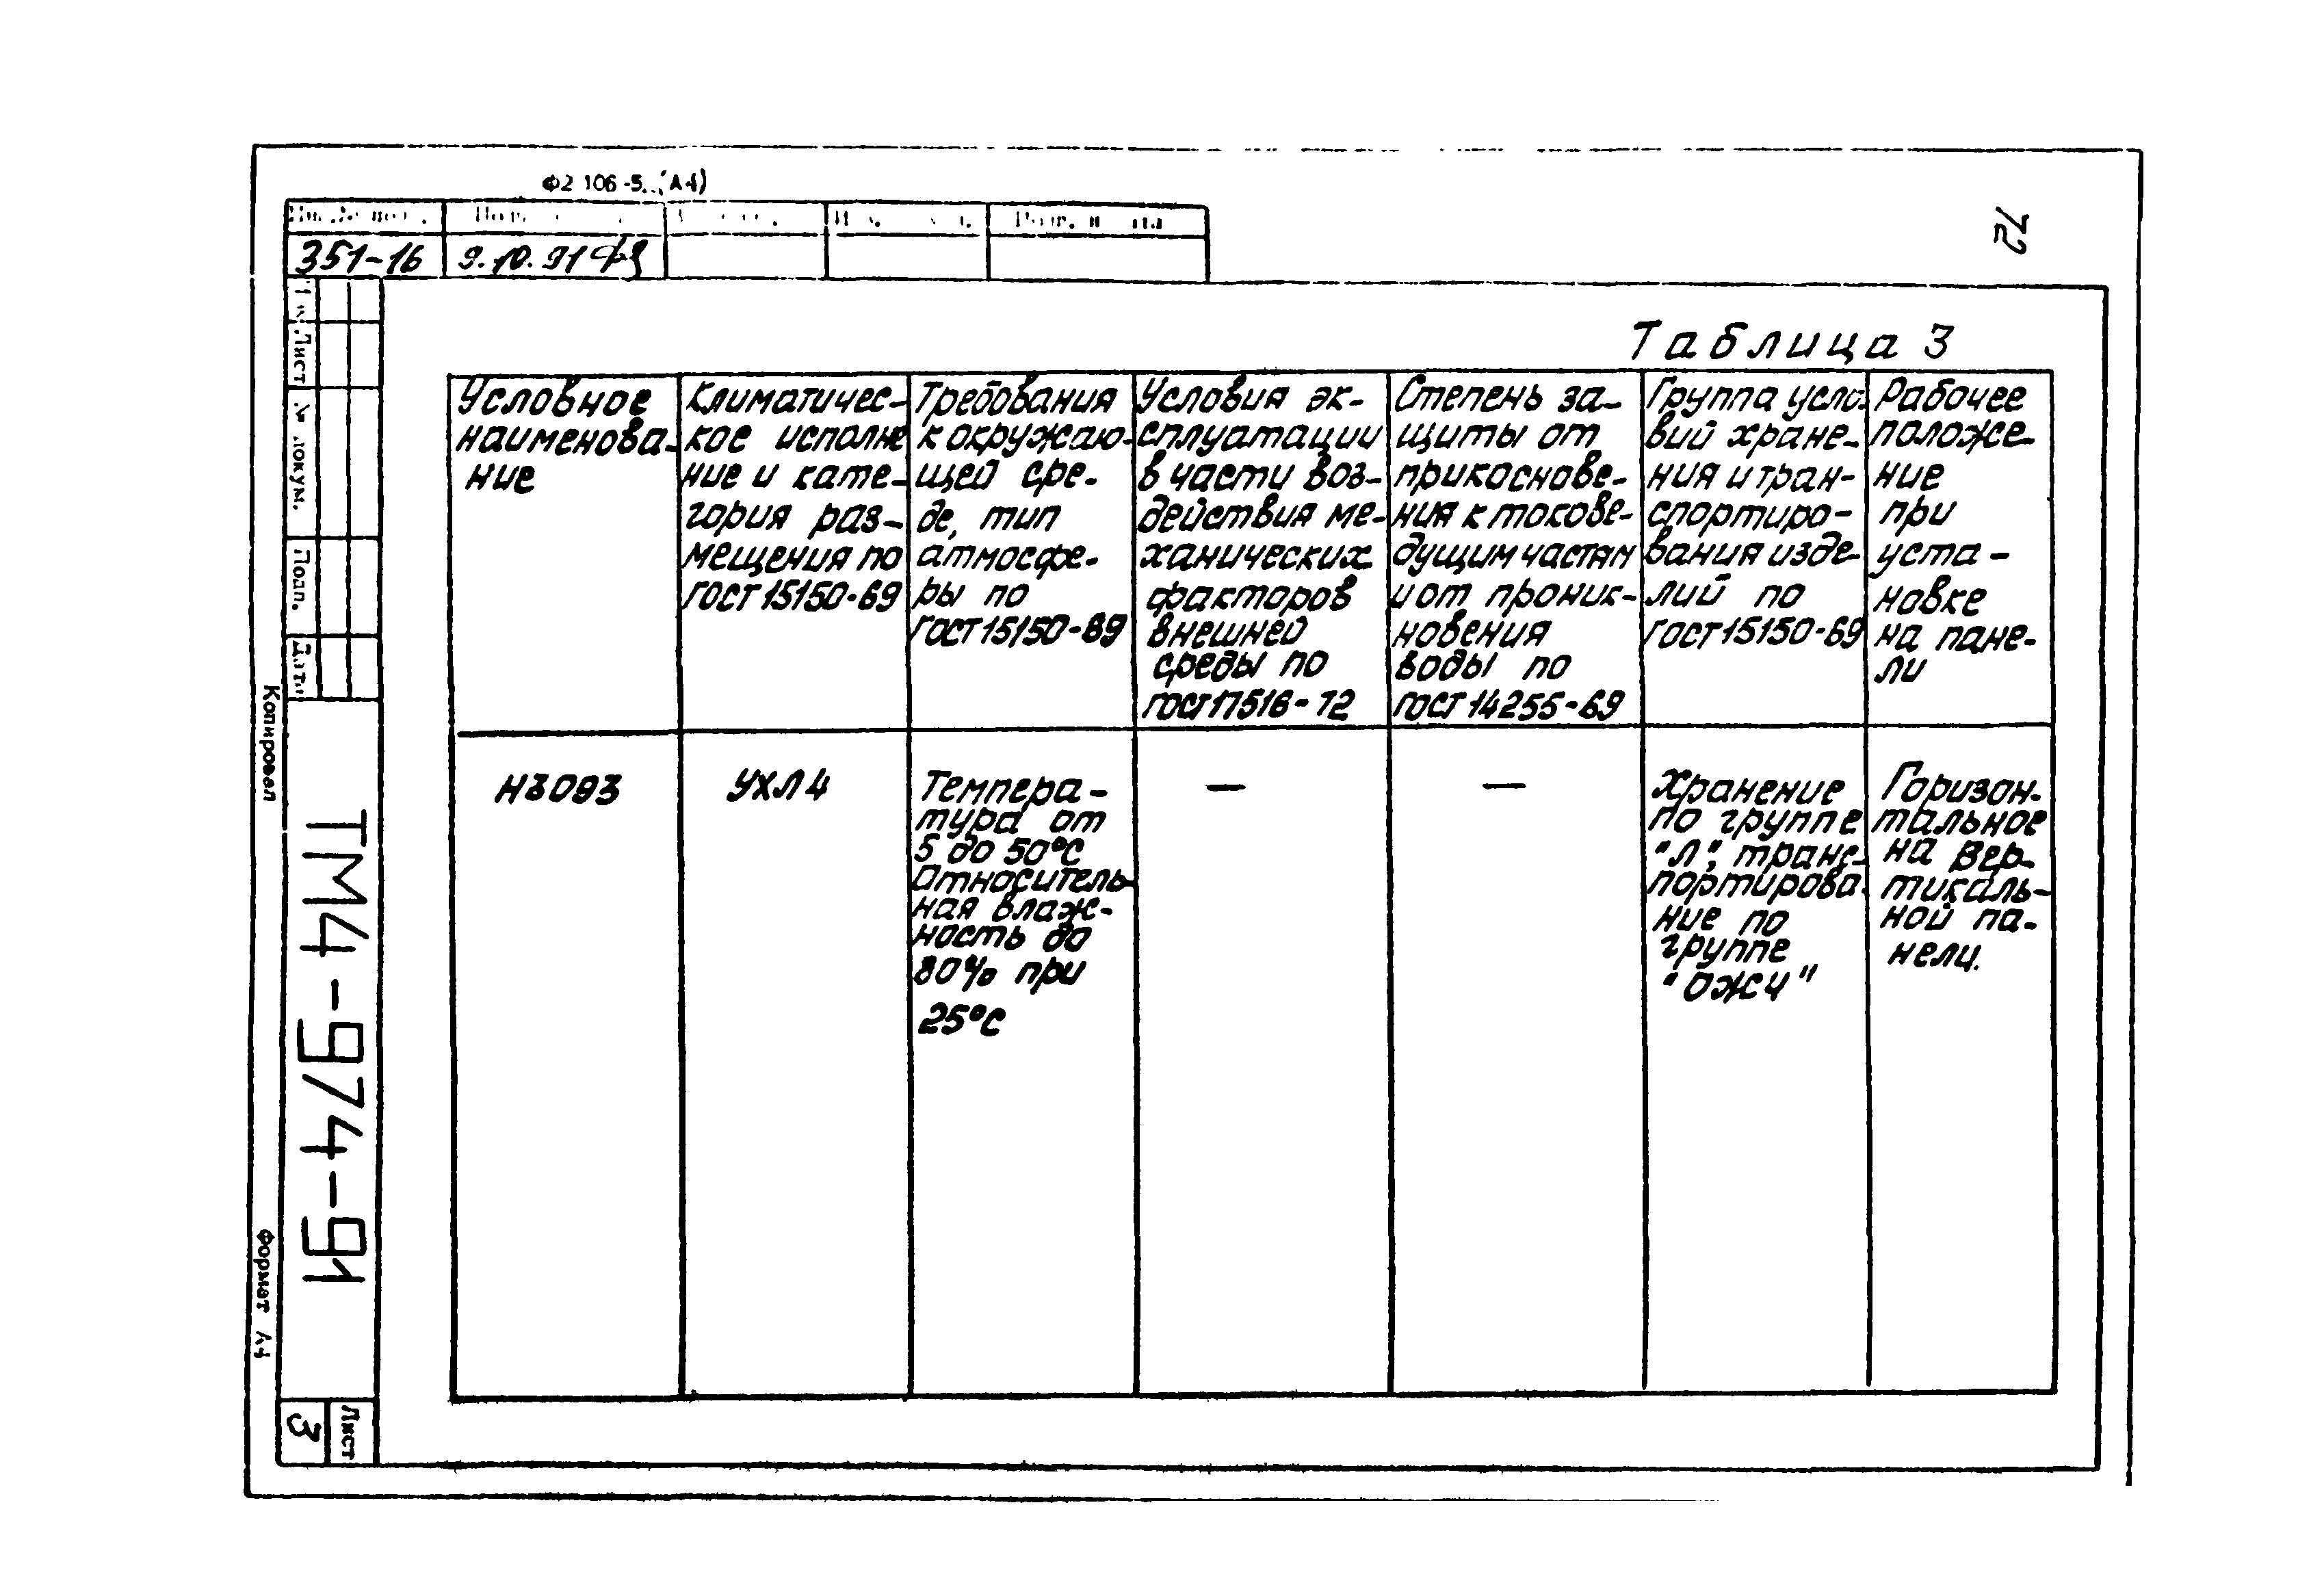 Ф2 106-5 (А4)
351-16 9.10.91
72
Таблица 3
Условное
наименова-
ние
Климатичес-
кое исполне
ние и кате-
гория раз-
мещения по
ГОСТ 15150-69
Требования
к окружаю-
щей сре-
де, тип
атмосфе-
ры по
ГОСТ 15150-69
Условия эк-
сплуатации
в части воз-
действия ме-
ханических
факторов
внешней
среды по
ГОСТ 17516-72
Степень за-
щиты от
прикоснове-
ния к токове-
дущим частям
и от проник-
новения
воды по
ГОСТ 14255-69
Группа усло-
вий хране-
ния и тран-
спортиро-
вания изде-
лий по
ГОСТ 15150-69
Рабочее
положе-
ние
при
уста-
новке
на пане-
ли
Н3093
УХЛ4
Темпера-
тура от
5 до 50°С
Относитель-
ная влаж-
ность до
80% при
25°С
—
—
Хранение
по группе
"Л", транс-
портирова-
ние по
группе
"ОЖ4"
Горизон-
тальное
на вер-
тикаль-
ной па-
нели.
Лист
№ докум.
Подп.
Дата
ТМ4-974-91
Лист
3
Копировал
Формат А4